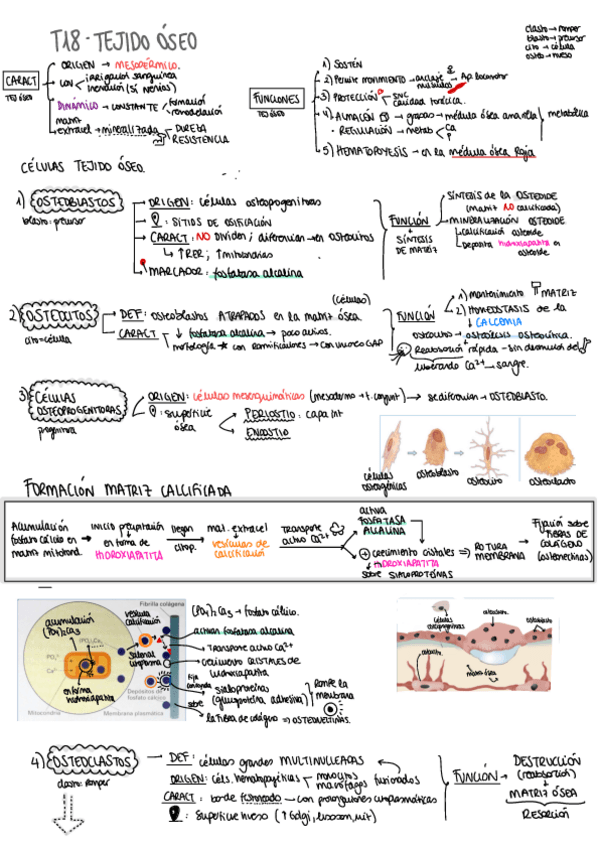 T18 - TEJIDO ÓSEO
clasto → romper
blasto → precursor
cito → célula
osteo → hueso
CARACT
TEJ ÓSEO
ORIGEN → MESODÉRMICO.
CON irrigación sanguínea
inervación (sí nervios)
DINÁMICO → CONSTANTE formación
remodelación
matriz
extracel → mineralizada DUREZA
RESISTENCIA
FUNCIONES
TEJ ÓSEO
1) SOSTÉN
2) Permite MOVIMIENTO → anclaje músculos → Ap. locomotor
3) PROTECCIÓN SNC
cavidad torácica.
4) ALMACÉN → grasas → médula ósea amarilla
· REGULACIÓN → metab Ca
P
metabólica
5) HEMATOPOYESIS → en la médula ósea roja
CÉLULAS TEJIDO ÓSEO.
1) OSTEOBLASTOS
blasto: precursor
ORIGEN: células osteoprogenitoras
: SITIOS DE OSIFICACIÓN
CARACT: NO dividen; diferencian → en osteocitos
↳ ↑RER; ↑mitocondrias
MARCADOR: fosfatasa alcalina
FUNCIÓN
↓
SÍNTESIS
DE MATRIZ
SÍNTESIS de la OSTEOIDE
(matriz NO calcificada)
MINERALIZACIÓN OSTEOIDE
calcificación osteoide
Deposita hidroxiapatita en
osteoide
2) OSTEOCITOS
cito = célula
(células)
DEF: osteoblastos ATRAPADOS en la matriz ósea
CARACT ↓ fosfatasa alcalina → poco activos.
morfología ★ con ramificaciones → con nexos GAP
FUNCIÓN
1) mantenimiento MATRIZ
2) HOMEOSTASIS de la
↓ CALCEMIA
osteocito → osteólisis osteocítica.
Reabsorción rápida - sin desmin del
liberando Ca²⁺ → sangre.
3) CÉLULAS
OSTEOPROGENITORAS
progenitora
ORIGEN: células mesenquimáticas (mesodermo → t. conjunt) → se diferencian → OSTEOBLASTO.
: superficie
ósea
PERIOSTIO: capa int
ENDOSTIO
células
osteogénicas
osteoblasto
osteocito
osteoclasto
FORMACIÓN MATRIZ CALCIFICADA
Acumulación
fosfato cálcico en
matriz mitocond.
→ inicio precipitación
en forma de
HIDROXIAPATITA
llegan
citop.
→ mat. extracel
↓
vesículas de
calcificación
TRANSPORTE
activo Ca²⁺
activa
FOSFATASA
ALCALINA
⊕ crecimiento cristales
HIDROXIAPATITA
sobre SIALOPROTEÍNAS
⇒ ROTURA
MEMBRANA
→ Fijación sobre
FIBRAS DE
COLÁGENO
(osteonectinas)
Fibrilla colágena
acumulación
(PO₄)₂Ca₃
vesícula
calcificación
PO₄³⁻
Ca²⁺
en forma
hidroxiapatita
Mitocondrias
Membrana plasmática
Depósitos de
fosfato cálcico
(PO₄)₂Ca₃ → fosfato cálcico.
activan fosfatasa alcalina
transporte activo Ca²⁺
crecimiento CRISTALES de
hidroxiapatita
sialoproteínas
(glucoproteína adhesiva)
Rompe la
membrana
sobre la fibra de colágeno ⇒ OSTEONECTINAS
células
osteoprogenitoras
osteoclasto
osteoblasto
osteocito
matriz ósea
4) OSTEOCLASTOS
clasto: romper
DEF: células grandes MULTINUCLEADAS
ORIGEN: céls. hematopoyéticas monocitos
macrófagos fusionados
CARACT: borde festoneado → con prolongaciones citoplasmáticas
: superficie hueso (↑Golgi, lisosom, mit)
FUNCIÓN →
DESTRUCCIÓN
(reabsorción)
↓
MATRIZ ÓSEA
RESORCIÓN